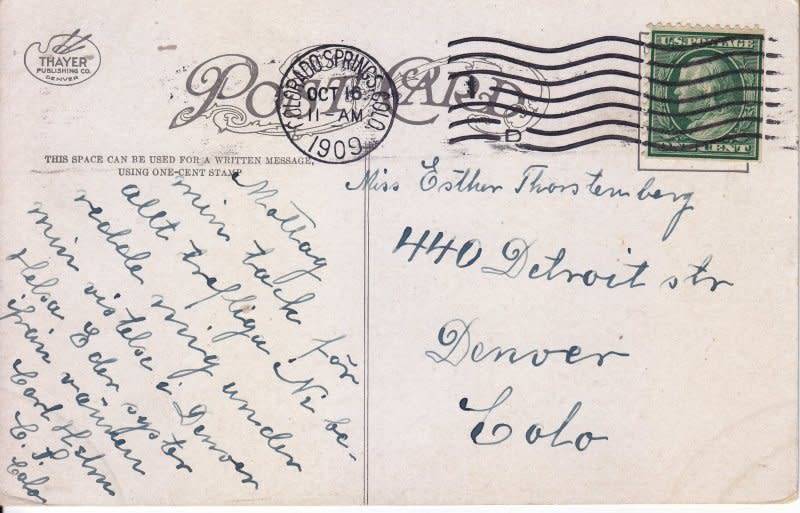 THAYER
PUBLISHING CO.
DENVER
POST CARD
COLORADO SPRINGS, COLO.
OCT 16
11-AM
1909
1
D
U.S. POSTAGE
ONE CENT
THIS SPACE CAN BE USED FOR A WRITTEN MESSAGE,
USING ONE-CENT STAMP
Mottag
min tack för
allt trefliga Ni be-
redde mig under
min vistelse i Denver
Helsa Eder syster
ifrån vännen
Carl
C. S.
Colo
Miss Esther Thorstemberg
440 Detroit str
Denver
Colo